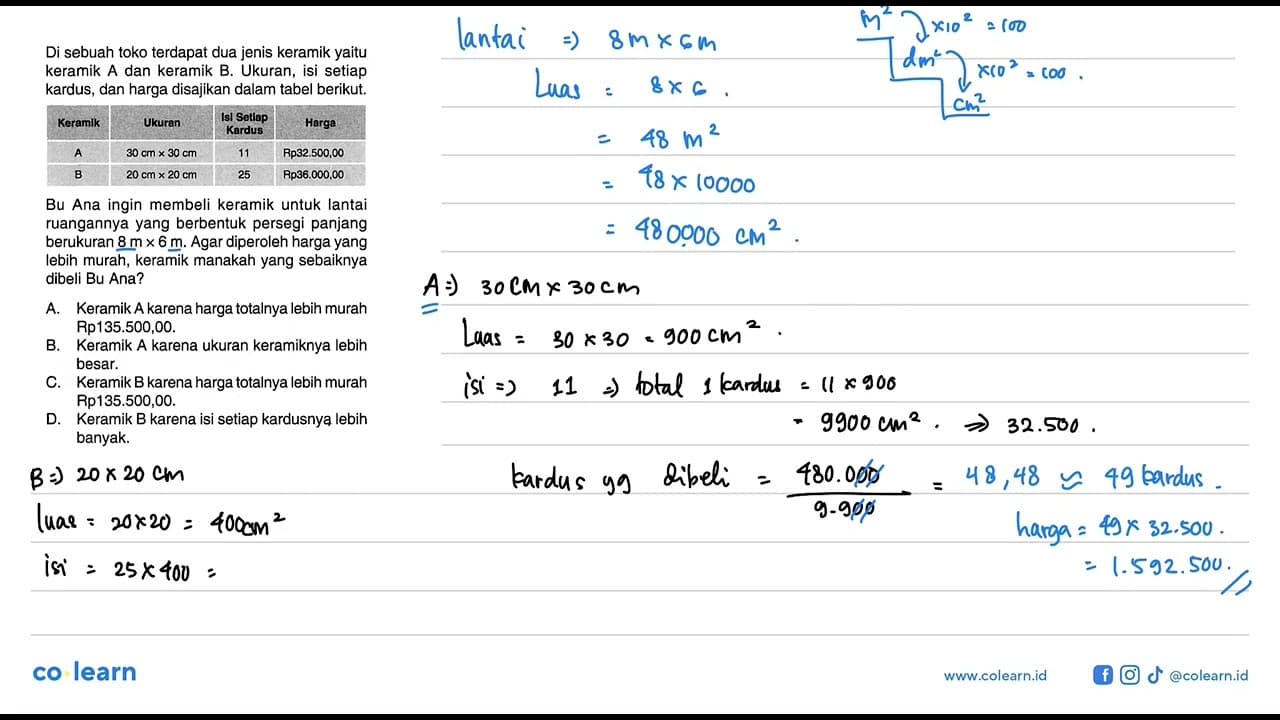 Di sebuah toko terdapat dua jenis keramik yaitu
keramik A dan keramik B. Ukuran, isi setiap
kardus, dan harga disajikan dalam tabel berikut.
Keramik Ukuran Isi Setiap Kardus Harga
A 30 cm × 30 cm 11 Rp32.500,00
B 20 cm × 20 cm 25 Rp36.000,00
Bu Ana ingin membeli keramik untuk lantai
ruangannya yang berbentuk persegi panjang
berukuran 8 m × 6 m. Agar diperoleh harga yang
lebih murah, keramik manakah yang sebaiknya
dibeli Bu Ana?
A. Keramik A karena harga totalnya lebih murah
Rp135.500,00.
B. Keramik A karena ukuran keramiknya lebih
besar.
C. Keramik B karena harga totalnya lebih murah
Rp135.500,00.
D. Keramik B karena isi setiap kardusnya lebih
banyak.
B => 20 × 20 cm
luas = 20 × 20 = 400 cm²
isi = 25 × 400 =
lantai => 8 m × 6 m
Luas = 8 × 6 .
= 48 m²
= 48 × 10000
= 480000 cm² .
m² ×10² = 100
dm² ×10² = 100 .
cm²
A => 30 cm × 30 cm
Luas = 30 × 30 = 900 cm² .
isi => 11 => total 1 kardus = 11 × 900
= 9900 cm² . => 32.500 .
kardus yg dibeli = 480.000 / 9.900 = 48,48 ≈ 49 kardus .
harga = 49 × 32.500 .
= 1.592.500 . //
co learn
www.colearn.id
@colearn.id